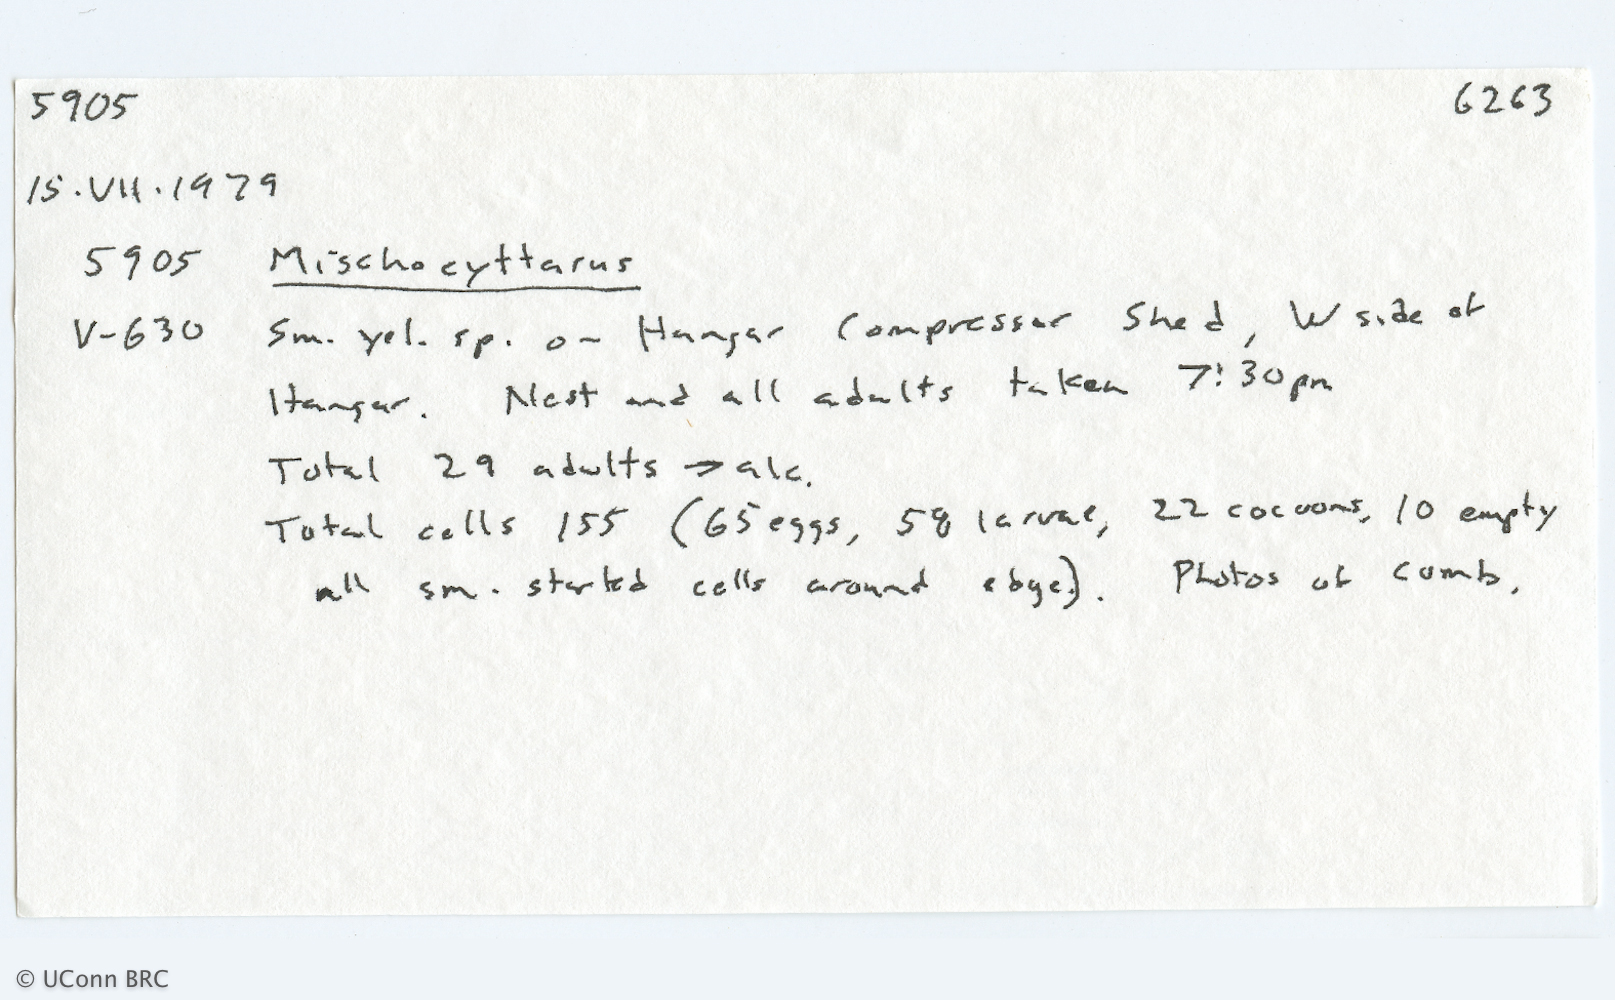 5905 6263
15.VII.1979
5905 Mischocyttarus
V-630 Sm. yel. sp. on Hangar Compressor Shed, W side of
Hangar. Nest and all adults taken 7:30pm
Total 29 adults → alc.
Total cells 155 (65 eggs, 58 larvae, 22 cocoons, 10 empty
all sm. started cells around edge). Photos of comb.
© UConn BRC